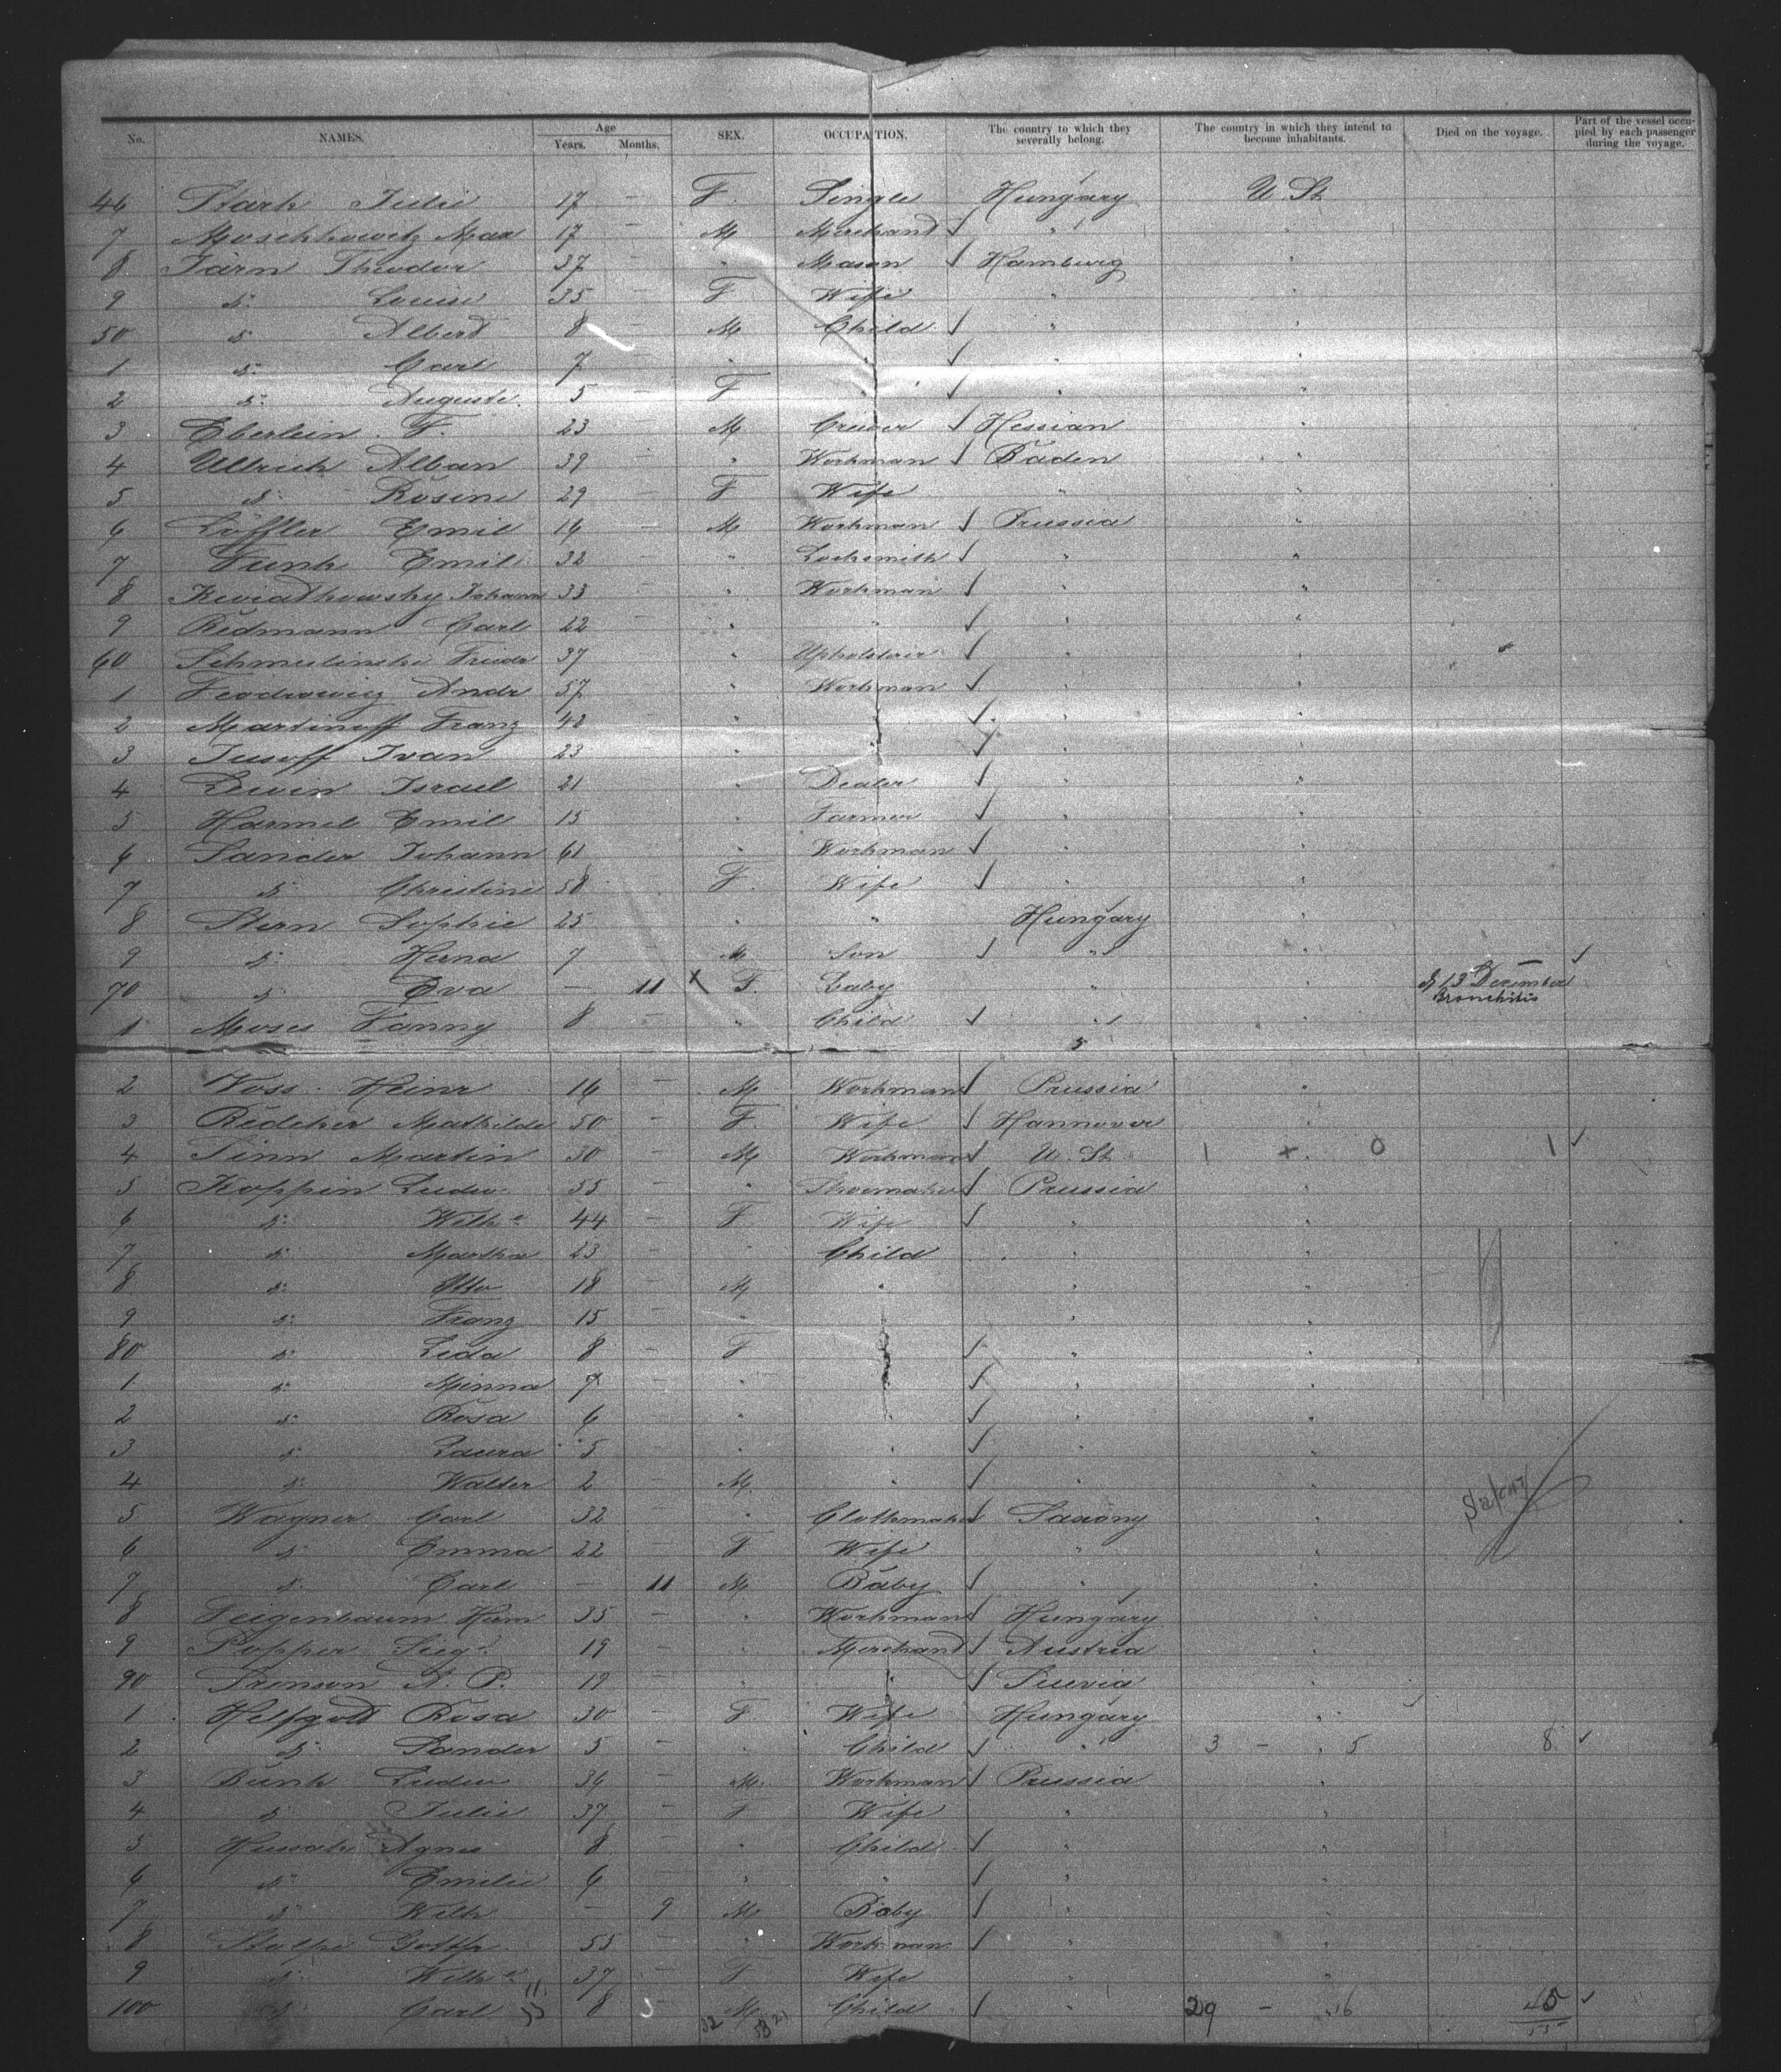 No. NAMES. Age Years. Months. SEX. OCCUPATION. The country to which they severally belong. The country in which they intend to become inhabitants. Died on the voyage. Part of the vessel occupied by each passenger during the voyage.
46 Stark Julie 17 — F. Single Hungary U. St.
7 Moschkowitz Max 17 — M Merchand √ " "
8 Järn Theodor 37 — " Mason √ Hamburg "
9 d: Louise 35 — F Wife " "
50 d: Albert 8 — M Child √ " "
1 d: Carl 7 — " " √ " "
2 d: Auguste 5 — F " √ " "
3 Eberlein F. 23 — M √ Hessian "
4 Ullrich Alban 39 — " Workman √ Baden "
5 d: Rosine 29 — F Wife " "
6 Löffler Emil 14 — M Workman √ Prussia "
7 Funk Emil 32 — " Locksmith √ " "
8 Kwiathowsky Johann 33 " Workman √ " "
9 Redmann Carl 22 " " √ " "
60 Schmulinski Friedr 37 " Upholsterer √ " "
1 Feodrowicz Andr 57 " Workman √ " "
2 Martinoff Franz 42 " " √ " "
3 Jusoff Ivan 23 " " √ " "
4 Lewin Israel 21 " Dealer √ " "
5 Harmel Emil 15 " Farmer √ " "
6 Sander Johann 61 " Workman √ " "
7 d: Christine 58 F. Wife √ " "
8 Stern Sophie 25 " " Hungary "
9 d: Herna 7 M Son √ " " √
70 d: Eva — 11 X F. Baby " " d/ 13 Dezember
Bronchitis
1 Moses Fanny 8 — " Child √ " "
5
2 Voss Heinr 16 — M Workman √ Prussia "
3 Redeker Mathilde 50 — F. Wife √ Hannover "
4 Sinn Martin 30 — M Workman √ U. St. 1 + 0 1 √
5 Koppin Ludw. 55 — " Shoemaker √ Prussia "
6 d: Wilh.e 44 — F. Wife √ " "
7 d: Martha 23 — " Child " "
8 d: Otto 18 — M " " "
9 d: Franz 15 — " " " "
80 d: Lida 8 — F " √ " "
1 d: Minna 7 — " " √ " "
2 d: Rosa 6 — " " √ " "
3 d: Laura 5 — " " √ " "
4 d: Walter 2 — M " √ " "
5 Wagner Carl 32 — " Clothmaker √ Saxony "
6 d: Emma 22 — F Wife " "
7 d: Carl — 11 M Baby √ " "
8 Feigenbaum Herm 35 — " Workman √ Hungary "
9 Popper Sieg.d 19 — " Merchand √ Austria "
90 A. P. 19 — " " √ "
1 Helfgott Rosa 30 — F. Wife Hungary "
2 d: Sander 5 — " Child √ " 3 — 5 8 √
3 Bunk Ludw 34 — M. Workman √ Prussia "
4 d: Julie 37 — F Wife " "
5 Hussak Agnes 8 — " Child √ " "
6 d: Emilie 6 — " " √ " "
7 d: Wilh — 9 M Baby √ " "
8 Stolpe Gottfr. 55 — " Workman √ " "
9 d: Wilh.e 37 — F Wife " "
100 d: Carl 8 — M Child √ " 29 — 16 45 √